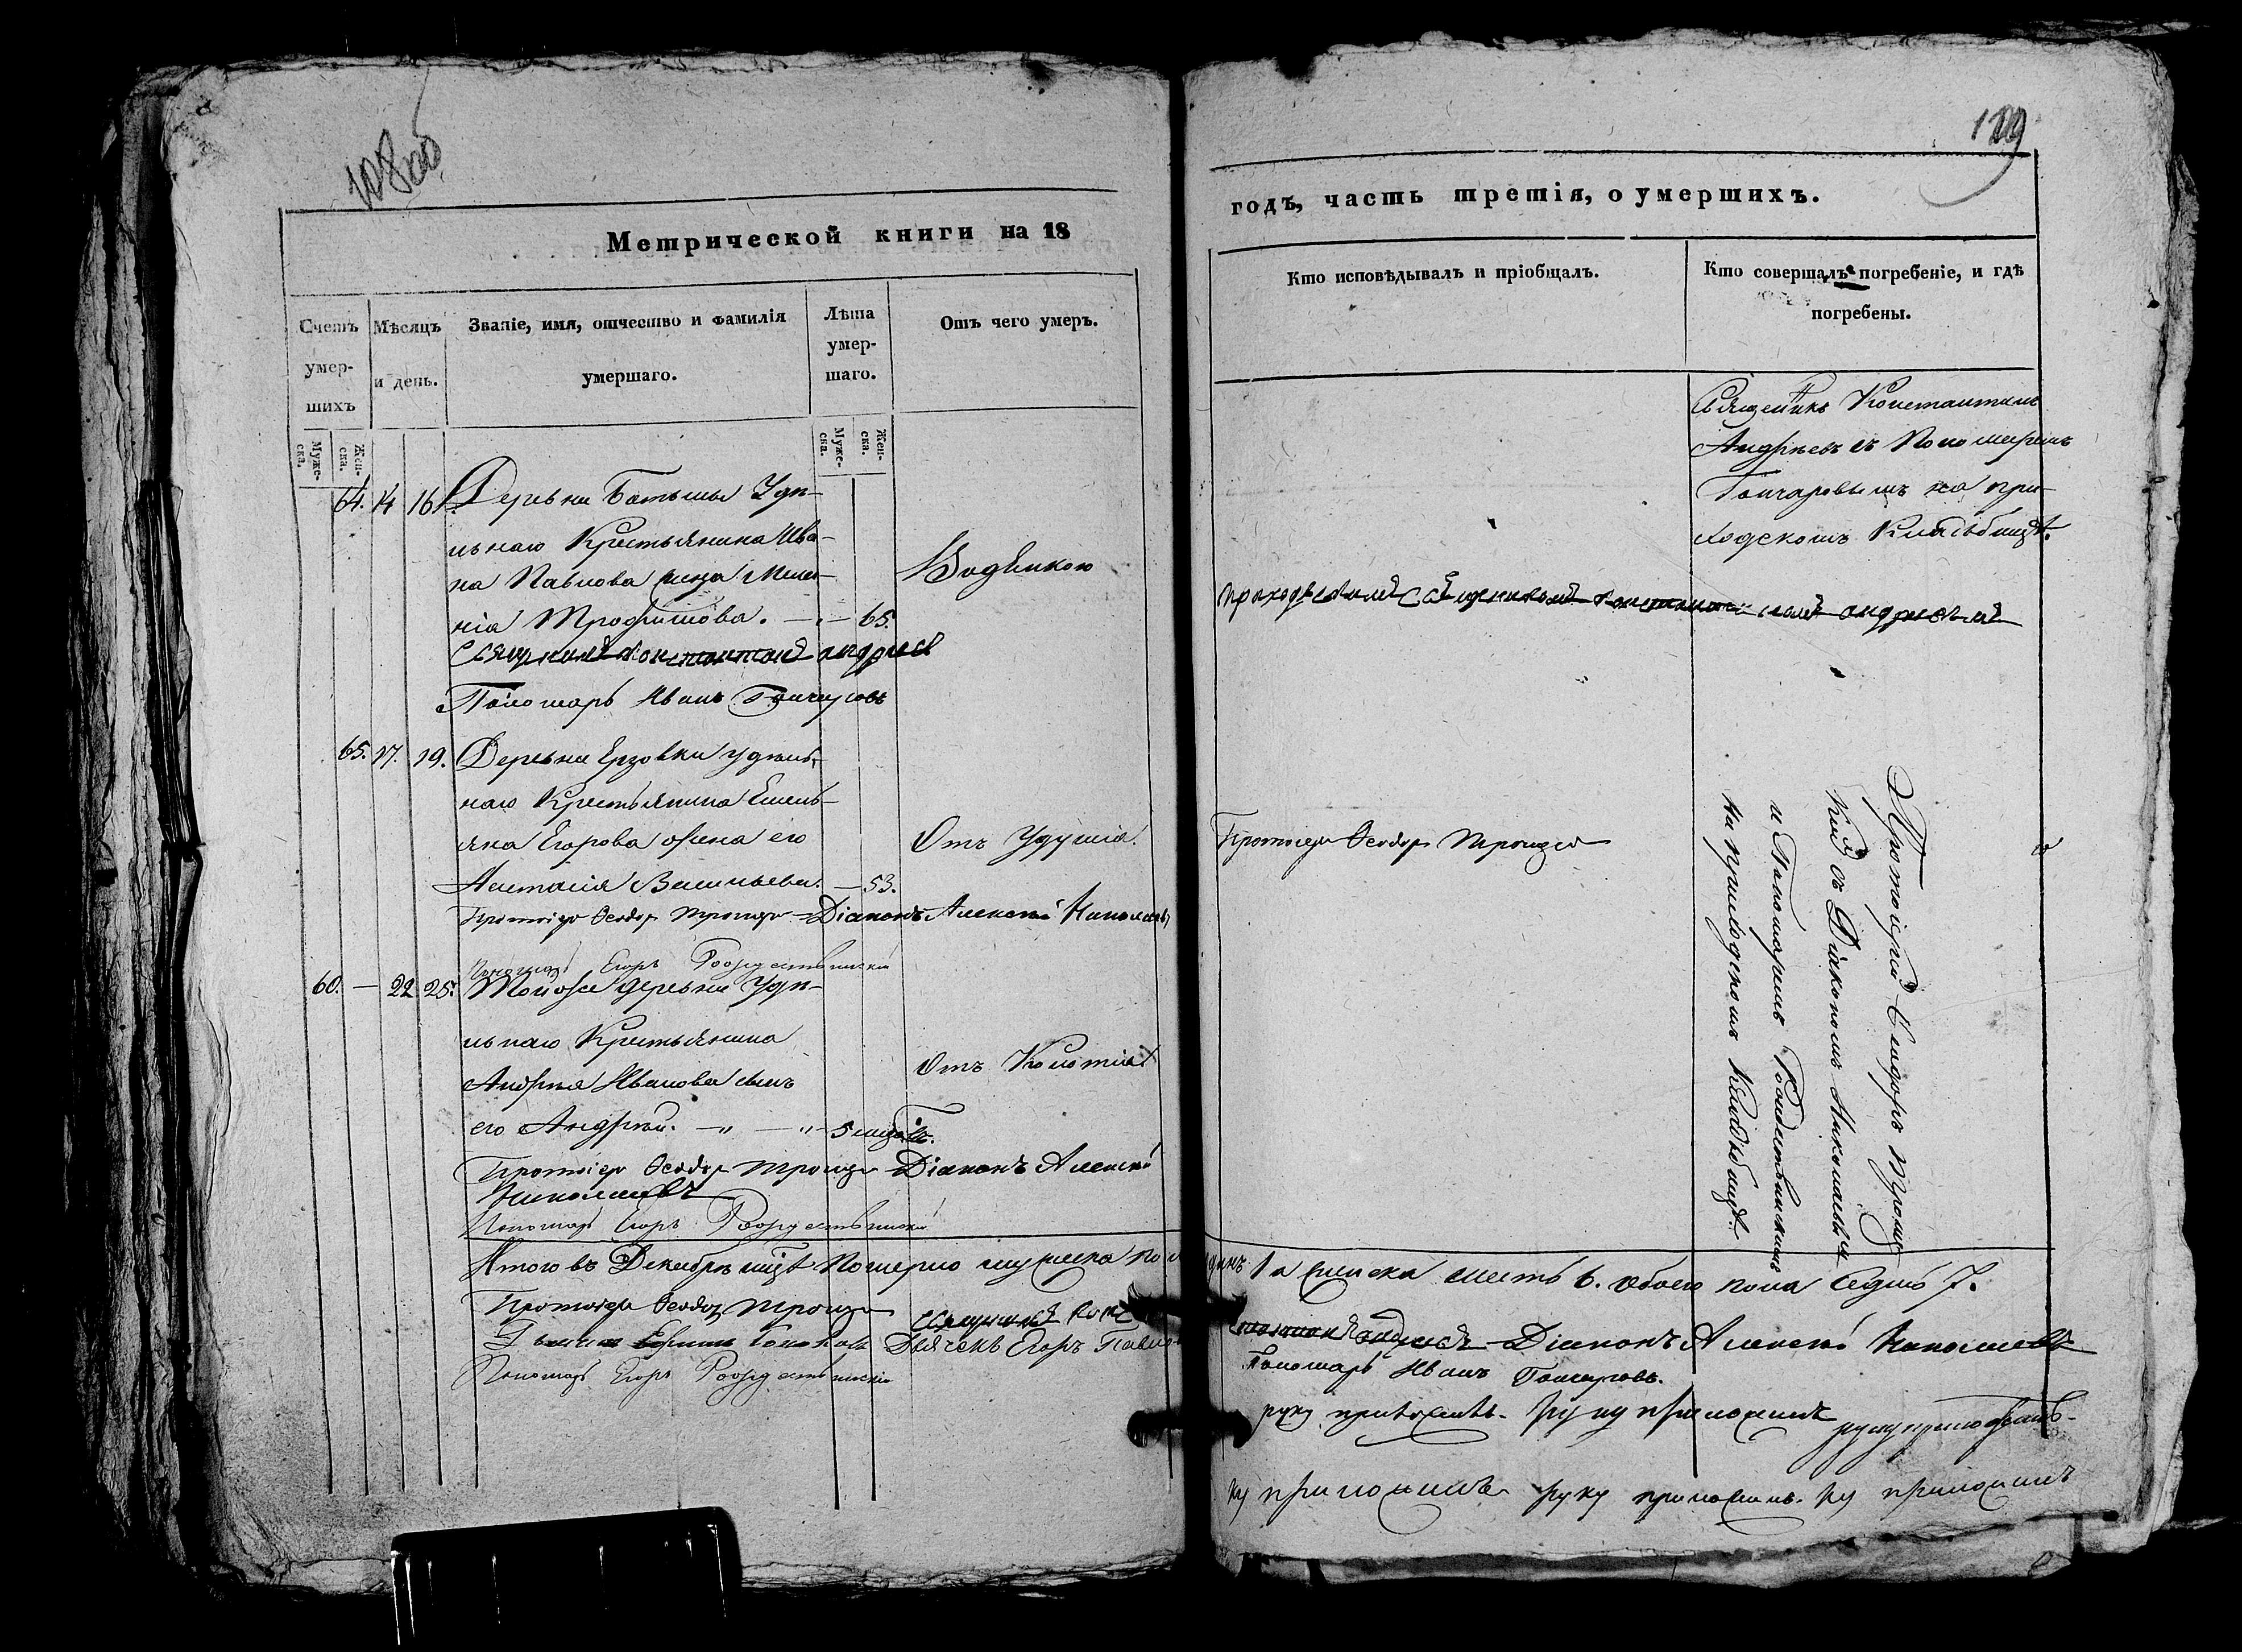 108 об
Метрической книги на 18
Счетъ умер-шихъ
Мѣсяцъ и день.
Званіе, имя, отчество и фамилія умершаго.
Лѣта умер-шаго.
Отъ чего умеръ.
Муже-ска.
Жен-ска.
Муже-ска.
Жен-ска.
64. 14 16. Деревни Удѣ-
льнаго Крестьянина Ива-
на Павлова
нія Трофимова. — 65.
Водянкою
Священникъ Константинъ Андреевъ
Пономарь Иванъ Гончаровъ
65. 17. 19. Деревни Ерзовки удѣль-
наго Крестьянина Емель-
яна Егорова жена его
Анастасія Васильева. — 53.
Отъ Удушія.
Протоіерей Ѳеодоръ Троицкій Діаконъ Алексѣй Николаевъ
Пономарь Егоръ Рождественскій
60. — 22 25. Тойже деревни Удѣ-
льнаго Крестьянина
Андрея Иванова сынъ
его Андрей. — " — " 5 мѣсяц.
Отъ Колотія
Протоіерей Ѳеодоръ Троицкій Діаконъ Алексѣй
Николаевъ
Пономарь Егоръ Рождественскій
Итого въ Декабрѣ мѣсяцѣ Померло мужеска пола
Протоіерей Ѳеодоръ Троицкій Священникъ Конс
Дьячекъ Егоръ Павло
Пономарь Егоръ Рождественскій
109
годъ, часть третія, о умершихъ.
Кто исповѣдывалъ и пріобщалъ.
Кто совершалъ погребеніе, и гдѣ погребены.
Священникъ Константинъ
Андреевъ съ Пономаремъ
Гончаровымъ на при-
ходскомъ Кладбищѣ.
приходскій Священникъ Константинъ Андреевъ
Протоіерей Ѳеодоръ Троицкій
Протоіерей Ѳеодоръ Троиц-
кій съ Діакономъ Николаевымъ
и Пономаремъ Рождественскимъ
на приходскомъ Кладбищѣ.
одинъ 1 а женска шесть 6. обоего пола Седмь 7.
Андреевъ Діаконъ Алексѣй Николаевъ
Пономарь Иванъ Гончаровъ.
руку приложилъ. руку приложилъ руку приложилъ.
ку приложилъ руку приложилъ. ку приложилъ